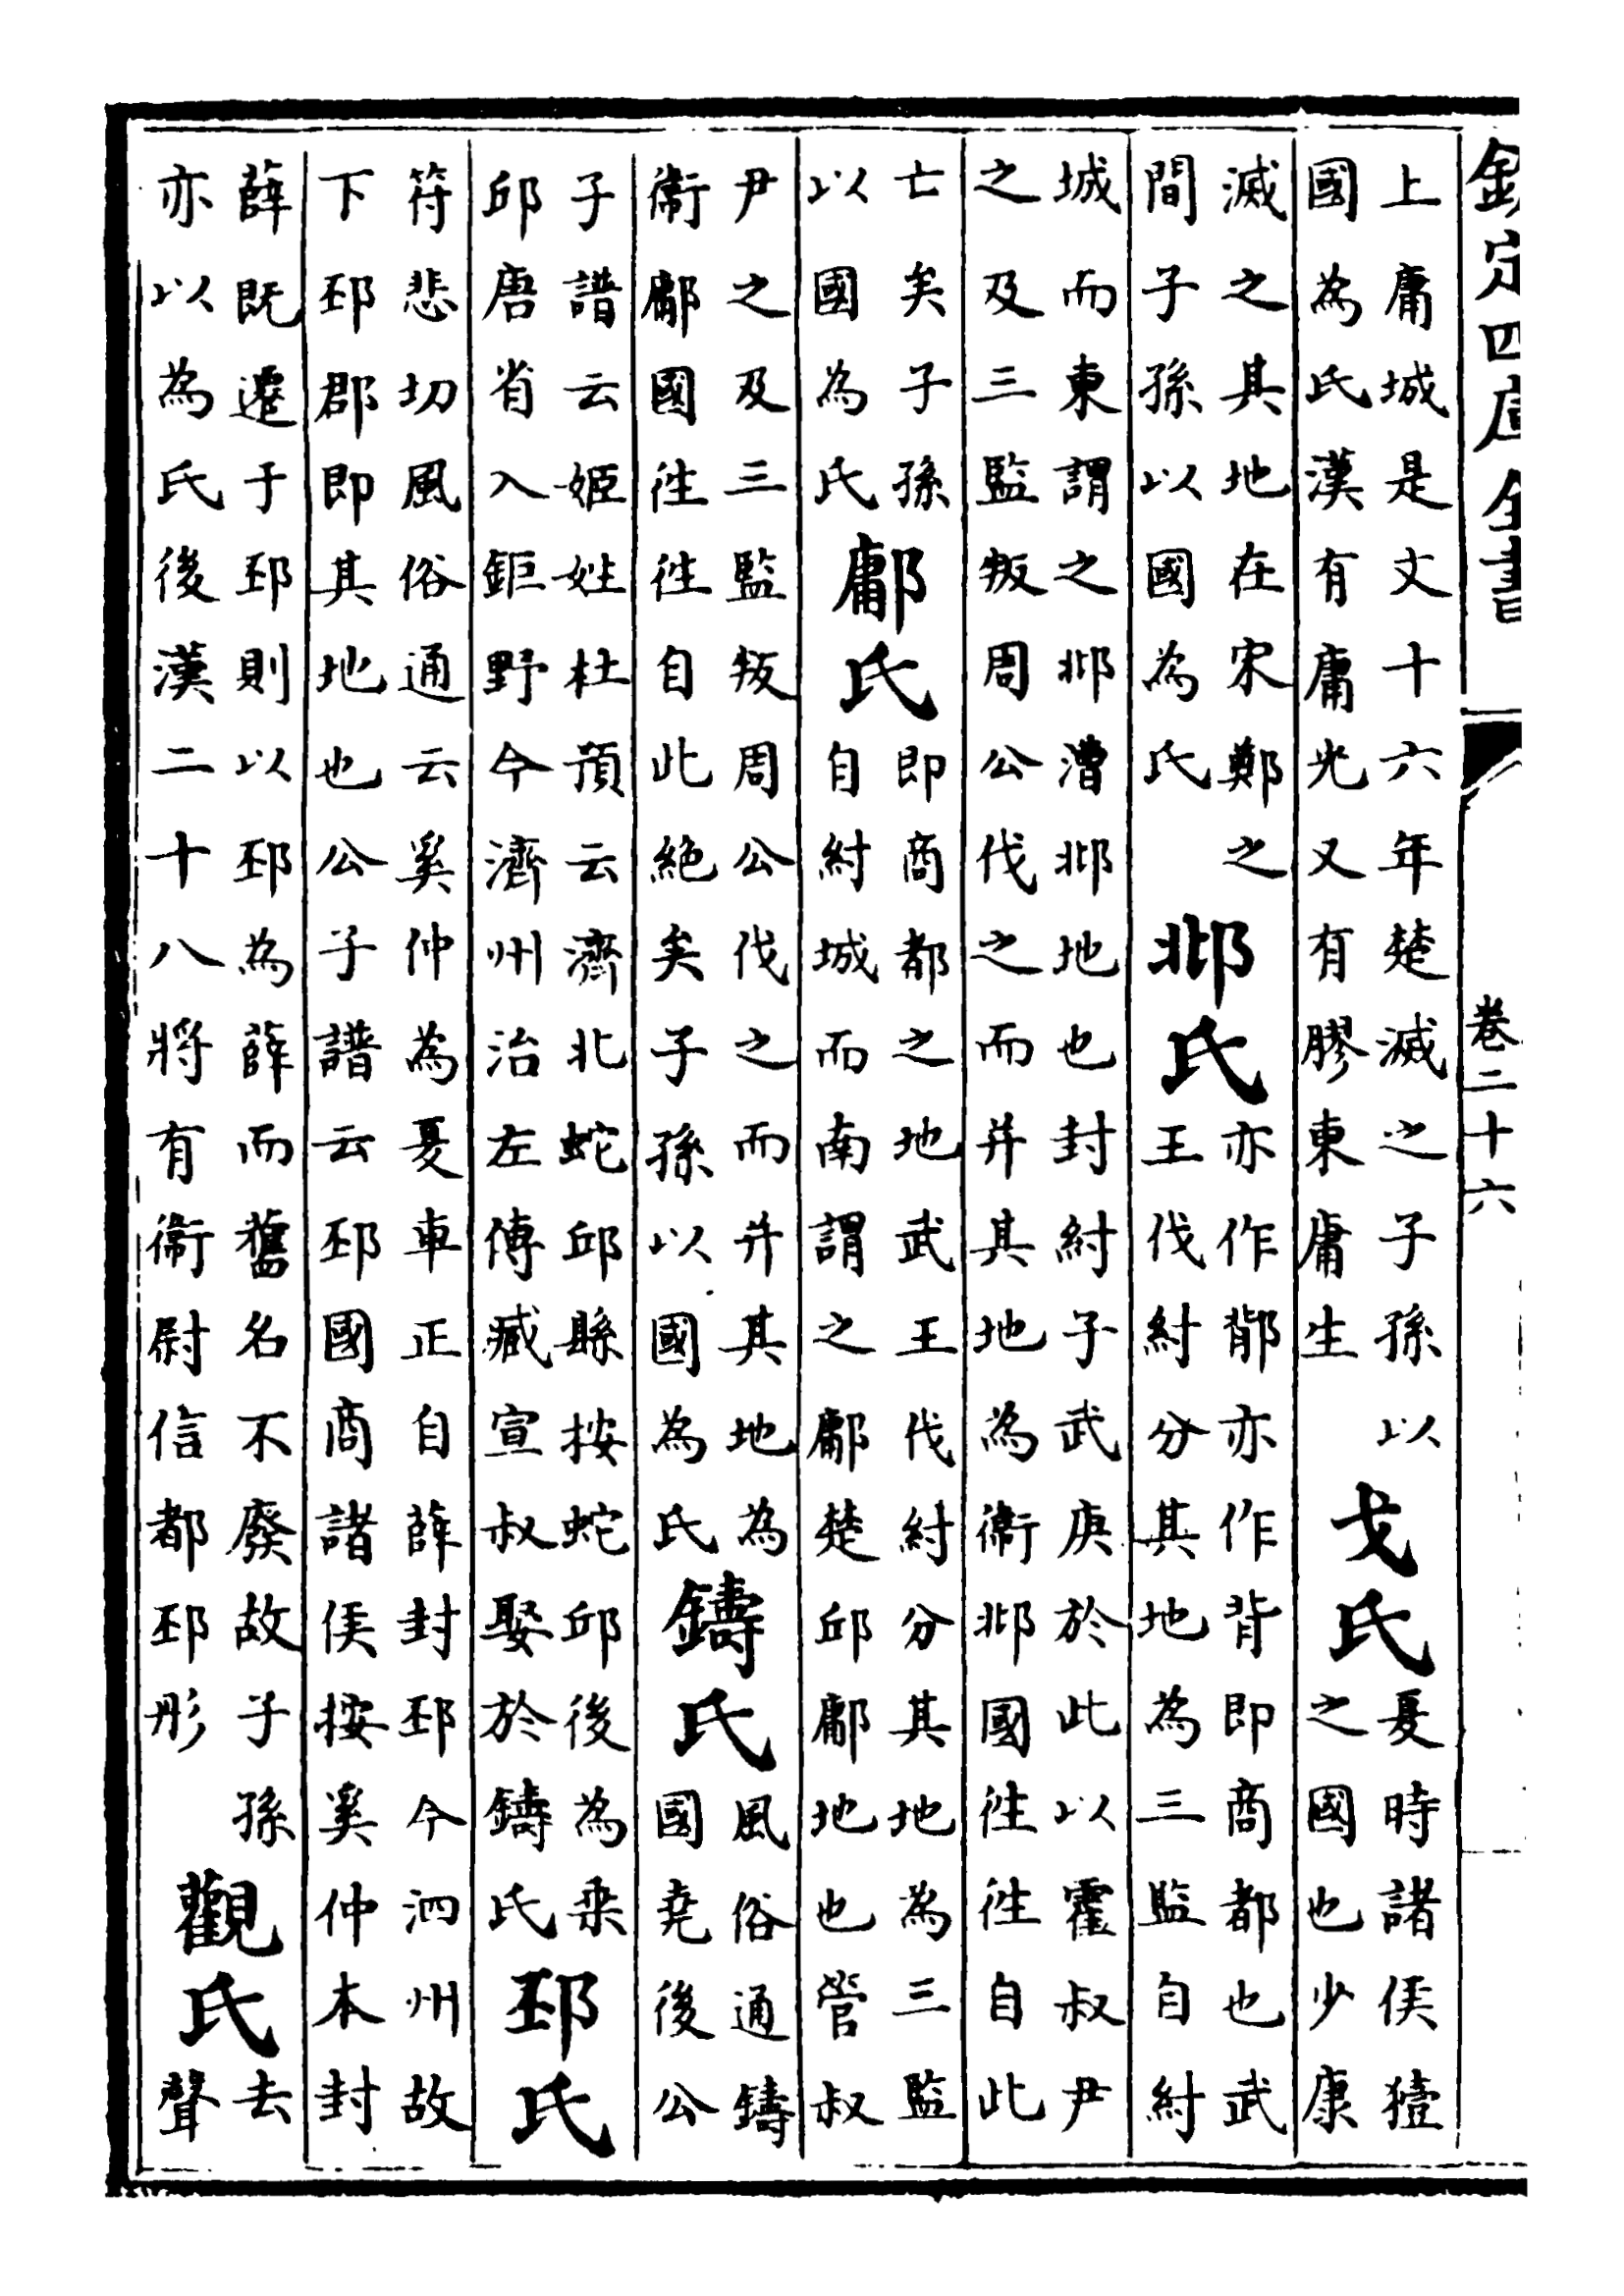 欽定四庫全書
卷二十六
上庸城是文十六年楚滅之子孫以
國為氏漢有庸光又有膠東庸生
戈氏
夏時諸侯豷
之國也少康
滅之其地在宋鄭之
間子孫以國為氏
邶氏
亦作鄁亦作背即商都也武
王伐紂分其地為三監自紂
城而東謂之邶漕邶地也封紂子武庚於此以霍叔尹
之及三監叛周公伐之而并其地為衛邶國往往自此
亡矣子孫
以國為氏
鄘氏
即商都之地武王伐紂分其地為三監
自紂城而南謂之鄘楚邱鄘地也管叔
尹之及三監叛周公伐之而并其地為
衛鄘國往往自此絶矣子孫以國為氏
鑄氏
風俗通鑄
國堯後公
子譜云姬姓杜預云濟北蛇邱縣按蛇邱後為乗
邱唐省入鉅野今濟州治左傳臧宣叔娶於鑄氏
邳氏
符悲切風俗通云奚仲為夏車正自薛封邳今泗州故
下邳郡即其地也公子譜云邳國商諸侯按奚仲本封
薛既遷于邳則以邳為薛而舊名不廢故子孫
亦以為氏後漢二十八將有衛尉信都邳彤
觀氏
去
聲